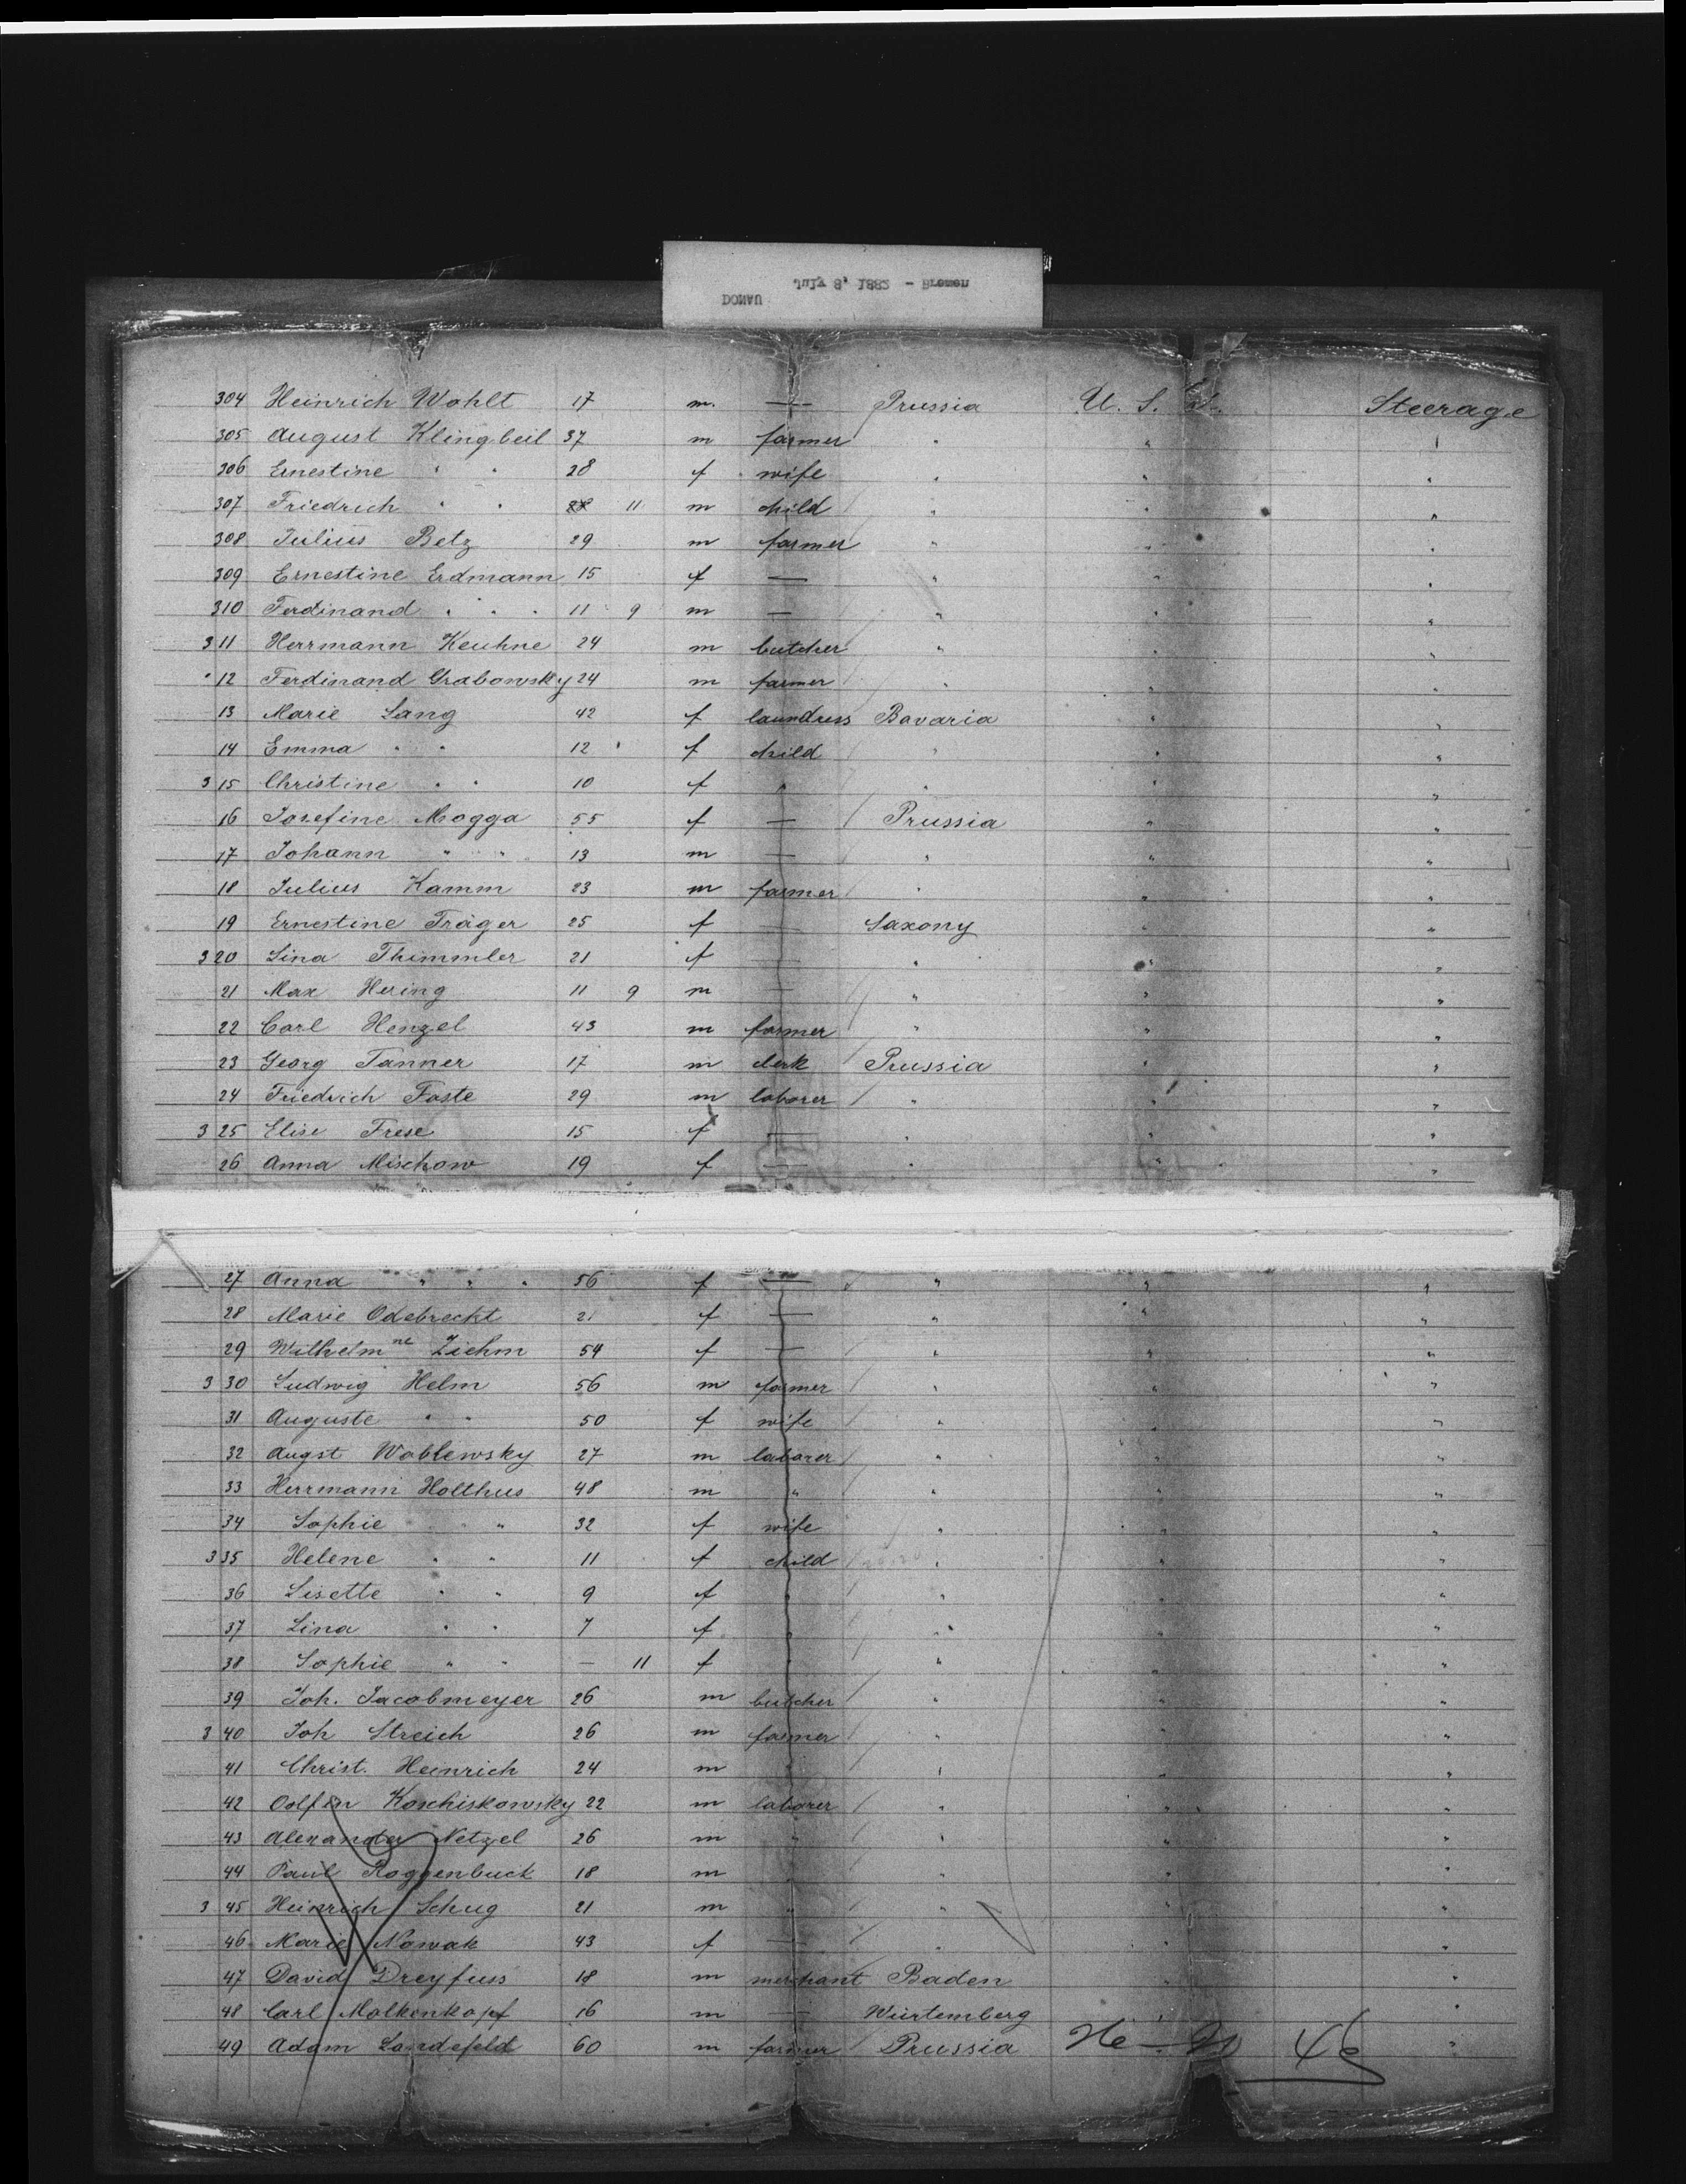 DONAU
July 8, 1882 - Bremen
304 Heinrich Wohlt 17 m. — Prussia U. S. Steerage
305 August Klingbeil 37 m farmer " " "
306 Ernestine " " 28 f wife " " "
307 Friedrich " " 11 m child " " "
308 Julius Betz 29 m farmer " " "
309 Ernestine Erdmann 15 f — " " "
310 Ferdinand " " " 11 9 m — " " "
311 Herrmann Keuhne 24 m butcher " " "
" 12 Ferdinand Grabowsky 24 m farmer " " "
13 Marie Lang 42 f laundress Bavaria " "
14 Emma " " 12 f child " " "
3 15 Christine " " 10 f " " " "
16 Josefine Mrogga 55 f — Prussia " "
17 Johann " " 13 m — " " "
18 Julius Kamm 23 m farmer " " "
19 Ernestine Träger 25 f — Saxony " "
3 20 Lina Thimmler 21 f — " " "
21 Max Hering 11 9 m — " " "
22 Carl Henzel 43 m farmer " " "
23 Georg Tanner 17 m clerk Prussia " "
24 Friedrich Foste 29 m laborer " " "
3 25 Elise Frese 15 f — " " "
26 Anna Mischow 19 f — " " "
27 Anna " " " 56 f — " " "
28 Marie Odebreckt 21 f — " " "
29 Wilhelmne Ziehm 54 f — " " "
3 30 Ludwig Helm 56 m farmer " " "
31 Auguste " " 50 f wife " " "
32 Augst Woblewsky 27 m laborer " " "
33 Herrmann Holthus 48 m " " " "
34 Sophie " 32 f wife " " "
3 35 Helene " " 11 f child " " "
36 Lisette " " 9 f " " " "
37 Lina " " 7 f " " " "
38 Sophie " " — 11 f " " " "
39 Joh. Jacobmeyer 26 m butcher " " "
3 40 Joh Streich 26 m farmer " " "
41 Christ. Heinrich 24 m " " " "
42 Koschiskowsky 22 m laborer " " "
43 Alexander Netzel 26 m " " " "
44 Paul Roggenbuck 18 m " " " "
3 45 Heinrich Schug 21 m " " " "
46 Marie Nowak 43 f — " " "
47 David Dreyfuss 18 m merchant Baden " "
48 Carl Molkenkopf 16 m — Würtemberg " "
49 Adam Landefeld 60 m farmer Prussia 46 "